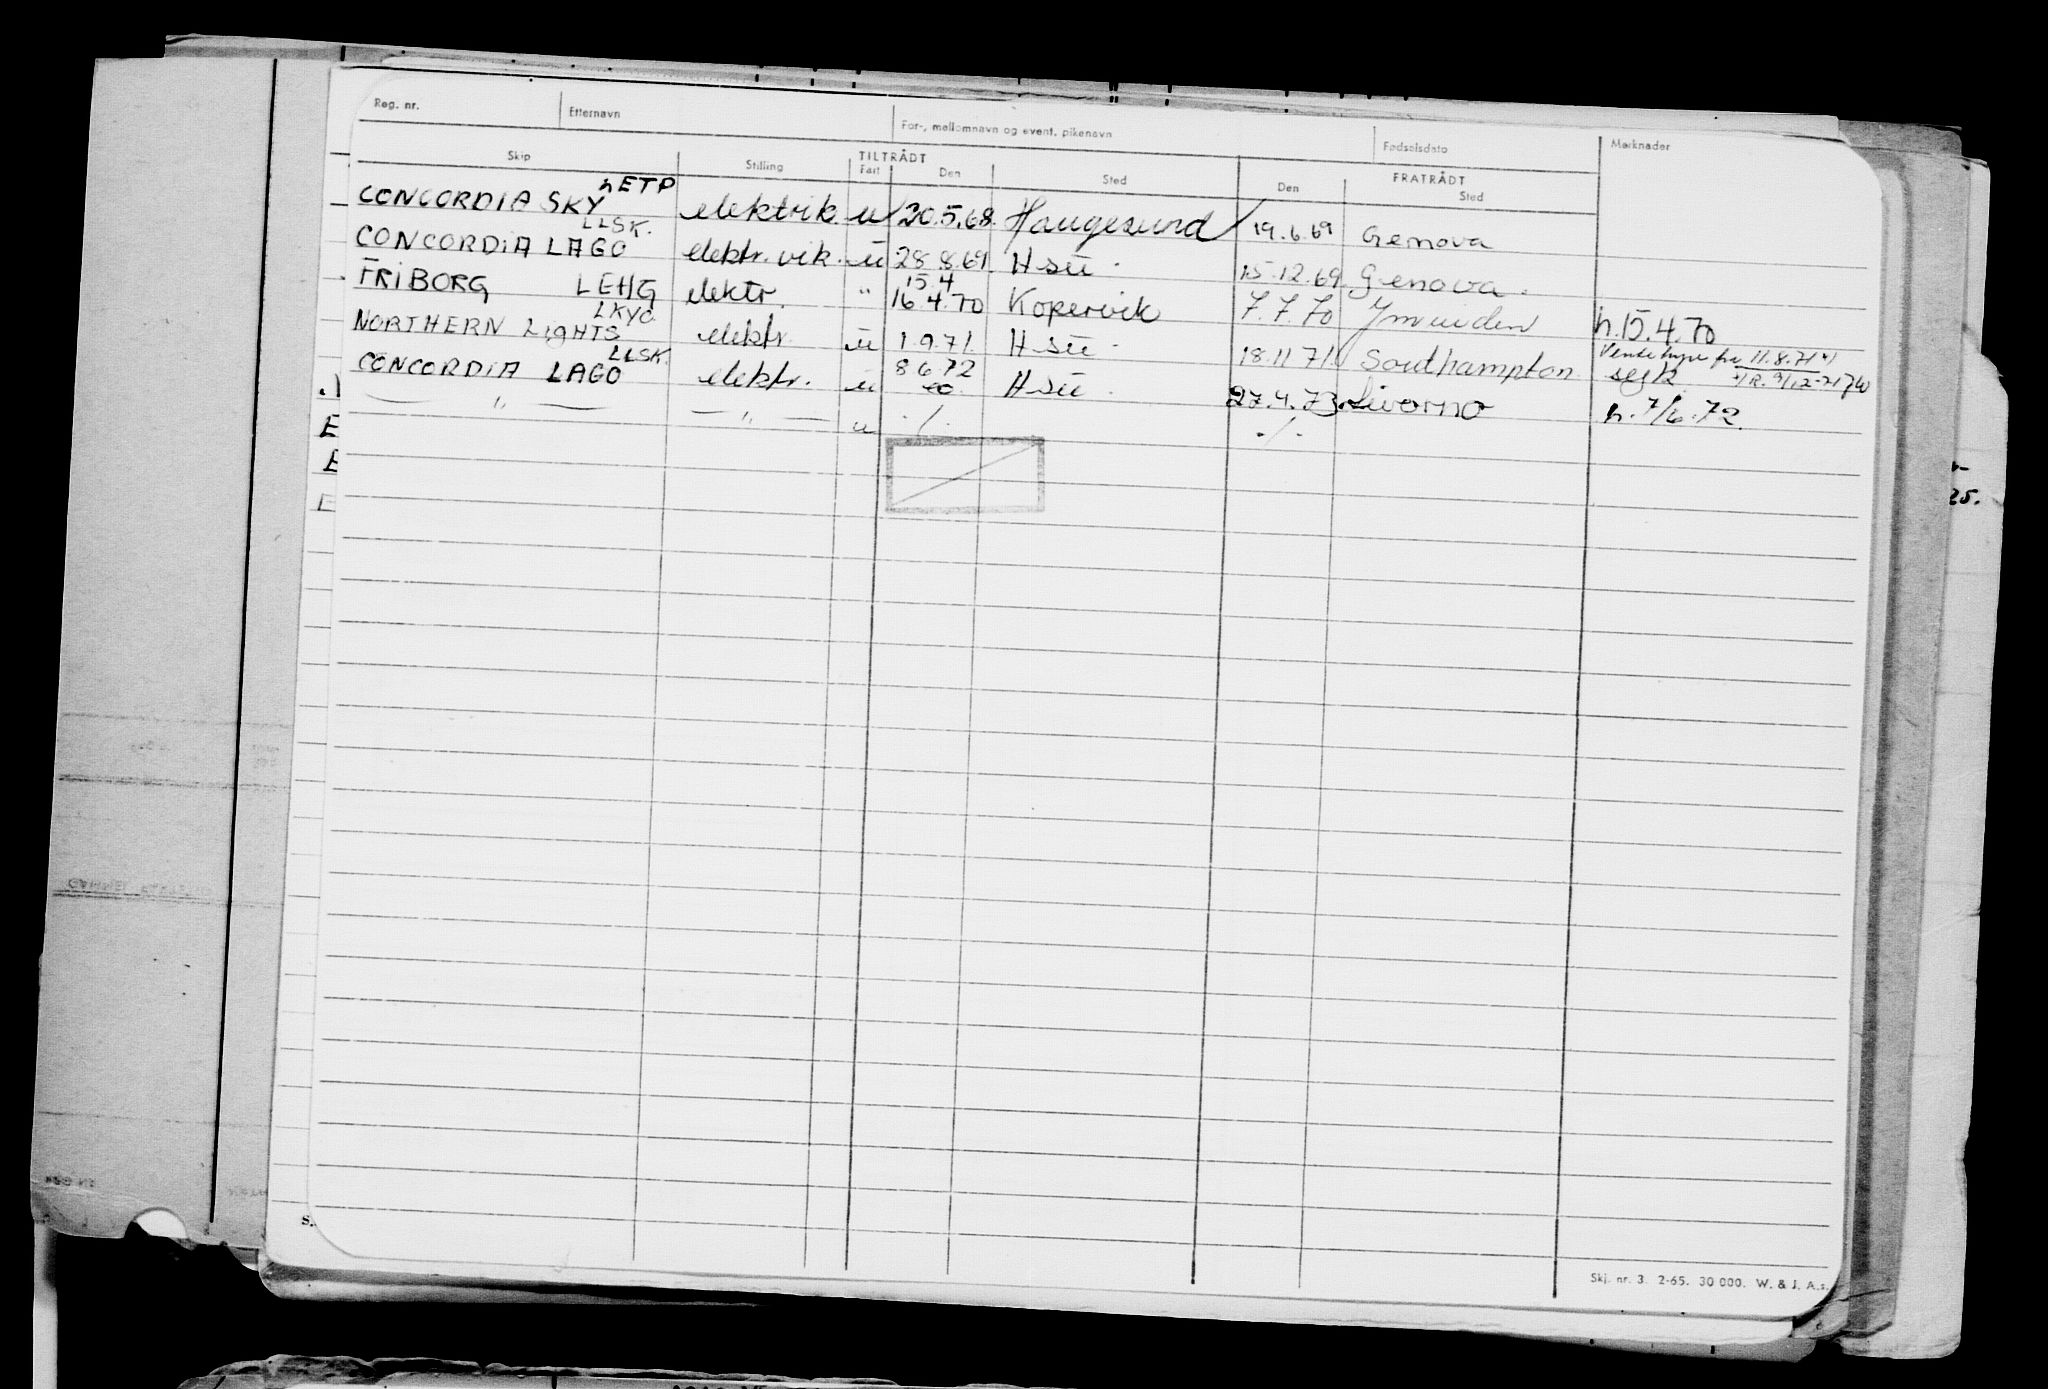 Reg. nr. Etternavn For-, mellomnavn og event. pikenavn Fødselsdato Merknader
Skip Stilling TILTRÅDT FRATRÅDT
Fart Den Sted Den Sted
LETP
CONCORDIA SKY elektrik u 20.5.68 Haugesund 19.6.69 Genova
LLSK.
CONCORDIA LAGO elektr. vik. u 28.8.69 Hsu. 15.12.69 Genova.
15.4
FRIBORG LEHG elektr. " 16.4.70 Kopervik 7.7.70 Ymuiden h.15.4.70
LKYC
NORTHERN LIGHTS elektr. u 1.9.71 Hsu. 18.11.71 Southampton 11.8.71
LLSK.
CONCORDIA LAGO elektr. u 8.6.72 Hsu. 27.4.73 Livorno h. 7/6.72.
— " — — " — u ./. ./.
E
E
E
25.
S.
Skj. nr. 3. 2-65. 30 000. W. & J. A.s.